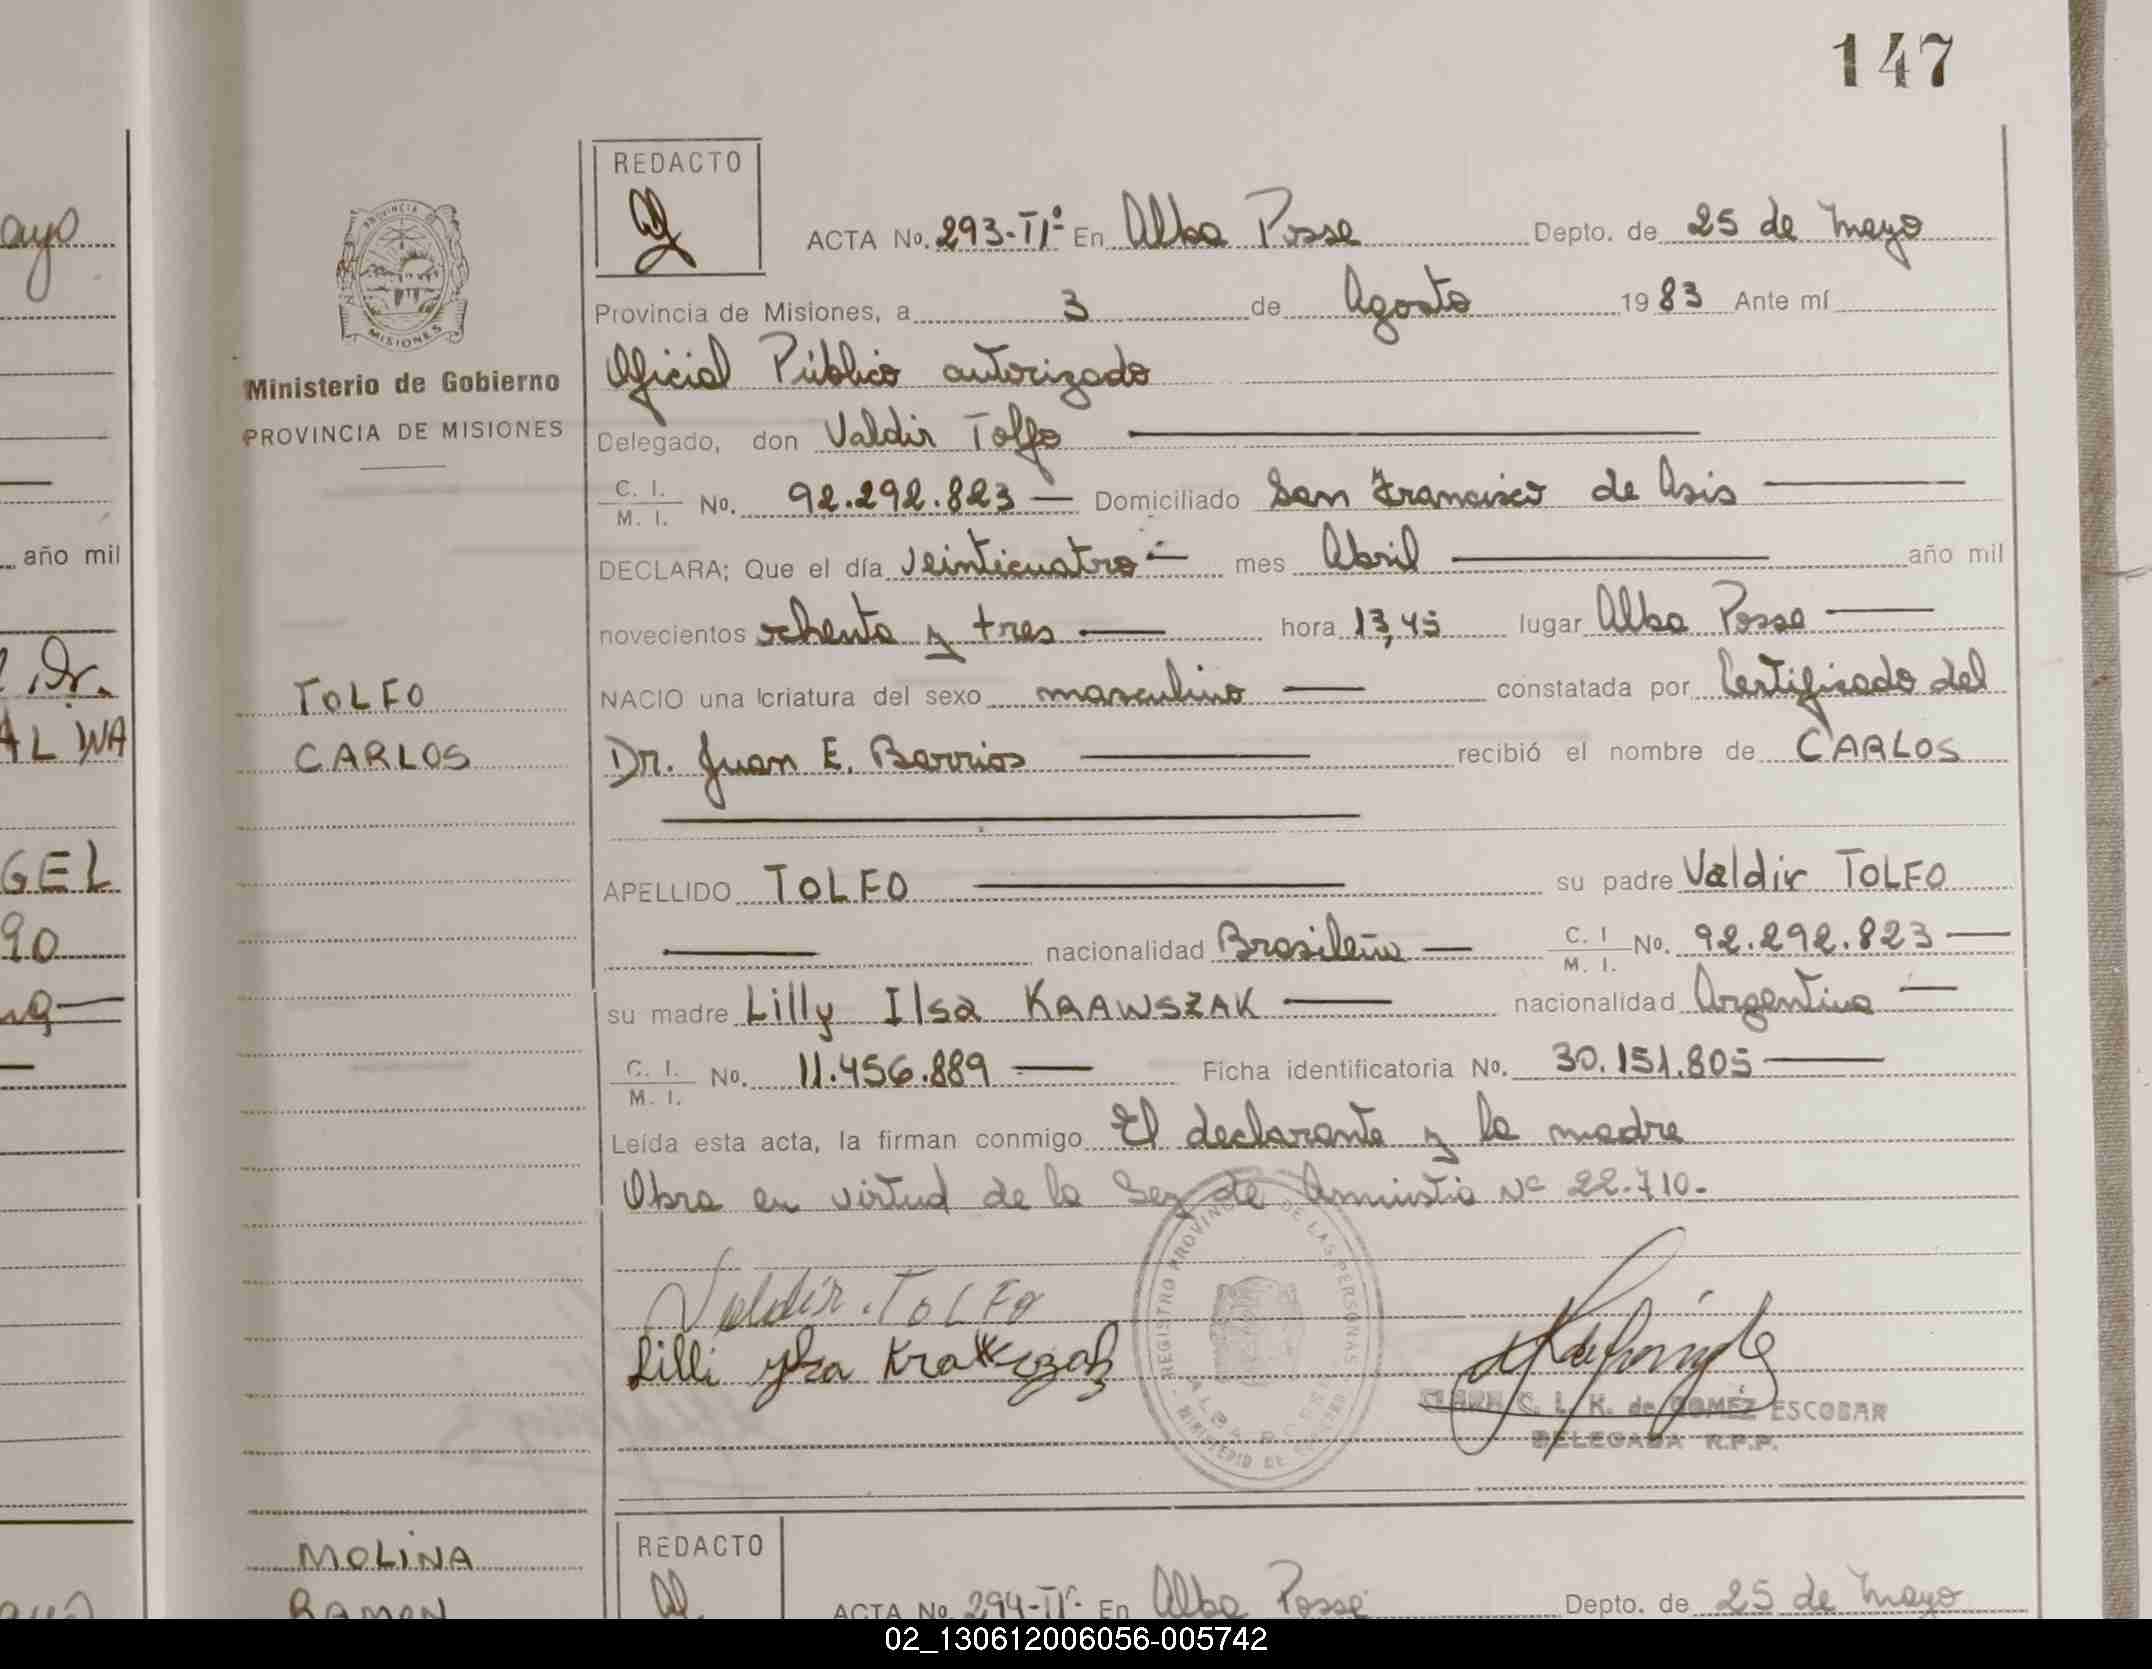 147
REDACTO
ACTA No. 293-II° En Alba Posse Depto. de 25 de Mayo
Provincia de Misiones, a 3 de Agosto 1983 Ante mí
Oficial Público autorizado
Delegado, don Valdir Tolfo
C. I. / M. I. No. 92.292.823 — Domiciliado San Francisco de Asis
DECLARA; Que el día Veinticuatro — mes Abril año mil
novecientos ochenta y tres — hora 13,45 lugar Alba Posse
NACIO una criatura del sexo masculino — constatada por Certificado del
Dr. Juan E. Barrios recibió el nombre de CARLOS
APELLIDO TOLFO su padre Valdir TOLFO
nacionalidad Brasileña — C. I / M. I. No. 92.292.823
su madre Lilly Ilsa KRAWSZAK — nacionalidad Argentina
C. I. / M. I. No. 11.456.889 — Ficha identificatoria No. 30.151.805
Leída esta acta, la firman conmigo El declarante y la madre
Obra en virtud de la Ley de Amnistia N° 22.710.
Valdir. TOLFO
Lilli ylsa Krawczak
REGISTRO PROVINCIAL DE LAS PERSONAS
ALBA POSSE
MINISTERIO DE GOBIERNO
CLARA C. L. K. de GOMEZ ESCOBAR
DELEGADA R.P.P.
PROVINCIA DE
MISIONES
Ministerio de Gobierno
PROVINCIA DE MISIONES
TOLFO
CARLOS
MOLINA
RAMON
REDACTO
ACTA No. 294-II° En Alba Posse Depto. de 25 de Mayo
ayo
año mil
Dr.
ALINA
GEL
90
02_130612006056-005742